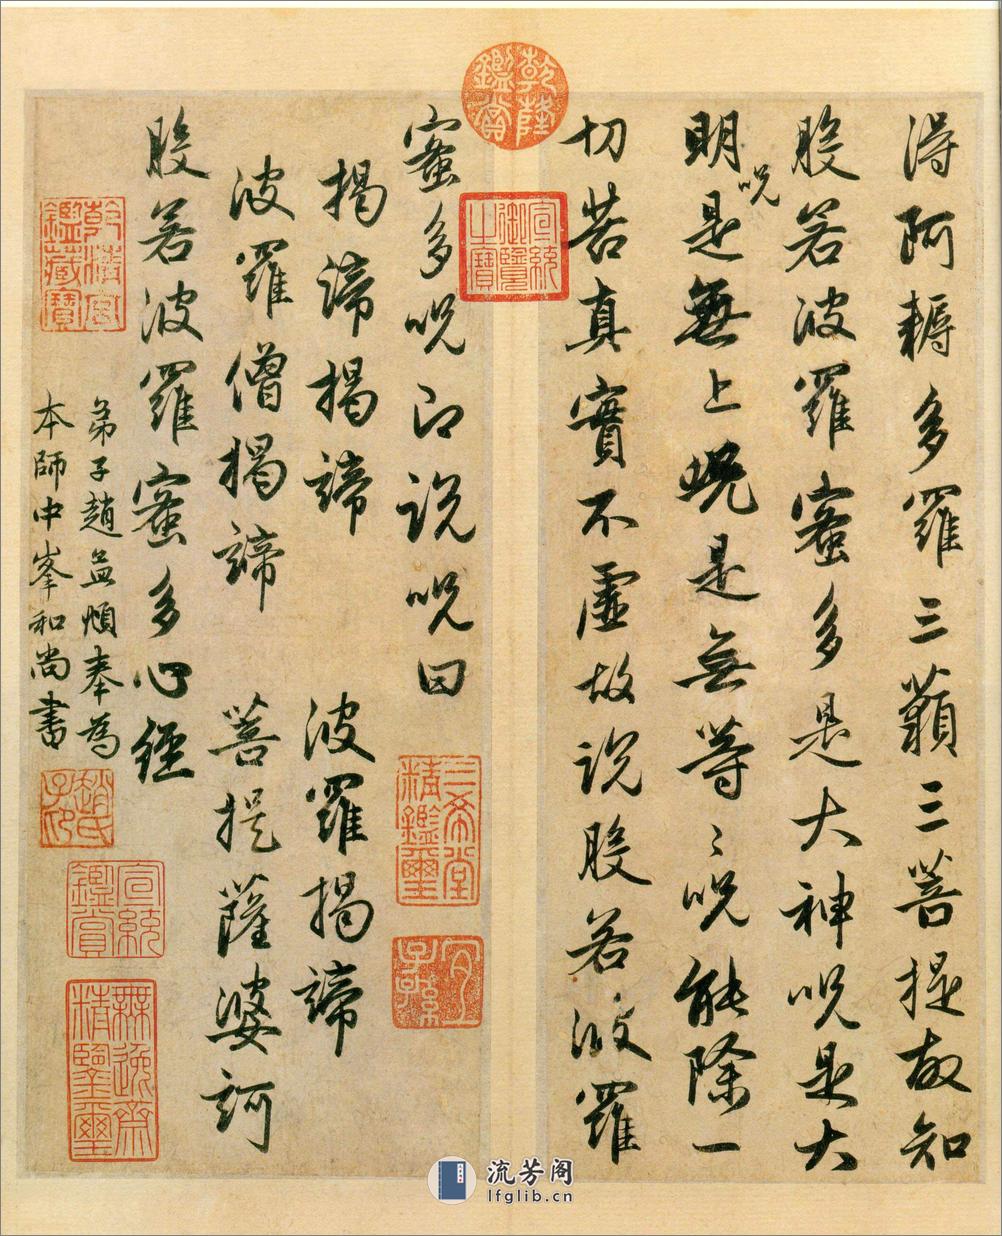 得阿耨多羅三藐三菩提故知
般若波羅蜜多是大神呪是大
明呪是無上呪是無等〻呪能除一
切苦真實不虛故說般若波羅
蜜多呪即說呪曰
揭諦揭諦 波羅揭諦
波羅僧揭諦 菩提薩婆訶
般若波羅蜜多心經
弟子趙孟頫奉為
本師中峯和尚書
乾隆鑑賞
宣統御覽之寶
三希堂精鑑璽
宜子孫
乾清宮鑑藏寶
趙氏子昂
宣統鑑賞
無逸齋精鑒璽
流芳阁
lfglib.cn